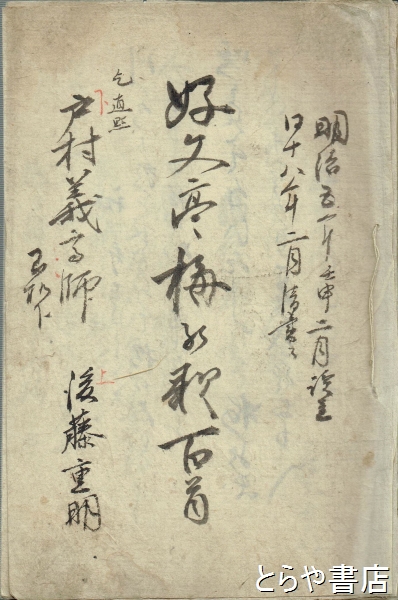 明治五年壬申二月詠之
同十八年二月清書之
好文亭梅の歌百首
乞直照
戸村義高師
玉机下
後藤重明
とらや書店